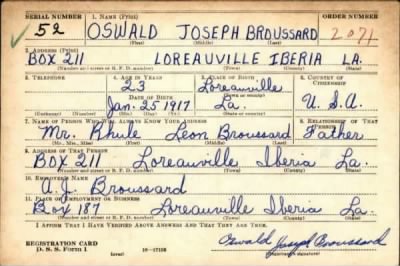 SERIAL NUMBER 1. NAME (Print) ORDER NUMBER
✓ 52 OSWALD JOSEPH BROUSSARD 2071
(First) (Middle) (Last)
2. ADDRESS (Print)
BOX 211 LOREAUVILLE IBERIA LA.
(Number and street or R. F. D. number) (Town) (County) (State)
3. TELEPHONE 4. AGE IN YEARS 5. PLACE OF BIRTH 6. COUNTRY OF CITIZENSHIP
23 Loreauville
DATE OF BIRTH (Town or county)
Jan. 25 1917 La. U.S.A.
(Exchange) (Number) (Mo.) (Day) (Yr.) (State or country)
7. NAME OF PERSON WHO WILL ALWAYS KNOW YOUR ADDRESS 8. RELATIONSHIP OF THAT PERSON
Mr. Rhule Leon Broussard Father
(Mr., Mrs., Miss) (First) (Middle) (Last)
9. ADDRESS OF THAT PERSON
BOX 211 Loreauville Iberia La.
(Number and street or R. F. D. number) (Town) (County) (State)
10. EMPLOYER'S NAME
A.J. Broussard
11. PLACE OF EMPLOYMENT OR BUSINESS
Box 187 Loreauville Iberia La.
(Number and street or R. F. D. number) (Town) (County) (State)
I AFFIRM THAT I HAVE VERIFIED ABOVE ANSWERS AND THAT THEY ARE TRUE.
REGISTRATION CARD
D. S. S. Form 1 (over) 16—17105 Oswald Joseph Broussard